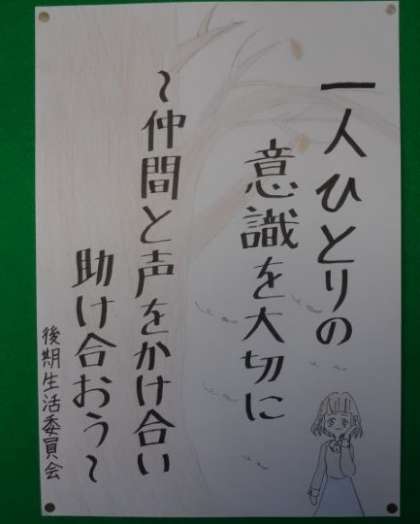 一人ひとりの
意識を大切に
～仲間と声をかけ合い
助け合おう～
後期生活委員会